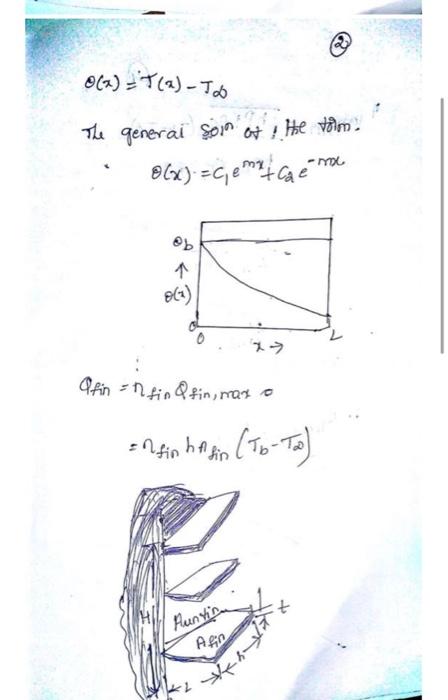 2
θ(x) = T(x) - T∞
The general Soln of the form.
θ(x) = C1e^mx + C2e^-mx
θb
↑
θ(x)
0
0 x → L
Qfin = ηfin Qfin, max
= ηfin hAfin (Tb - T∞)
H Aunfin t
Afin
L